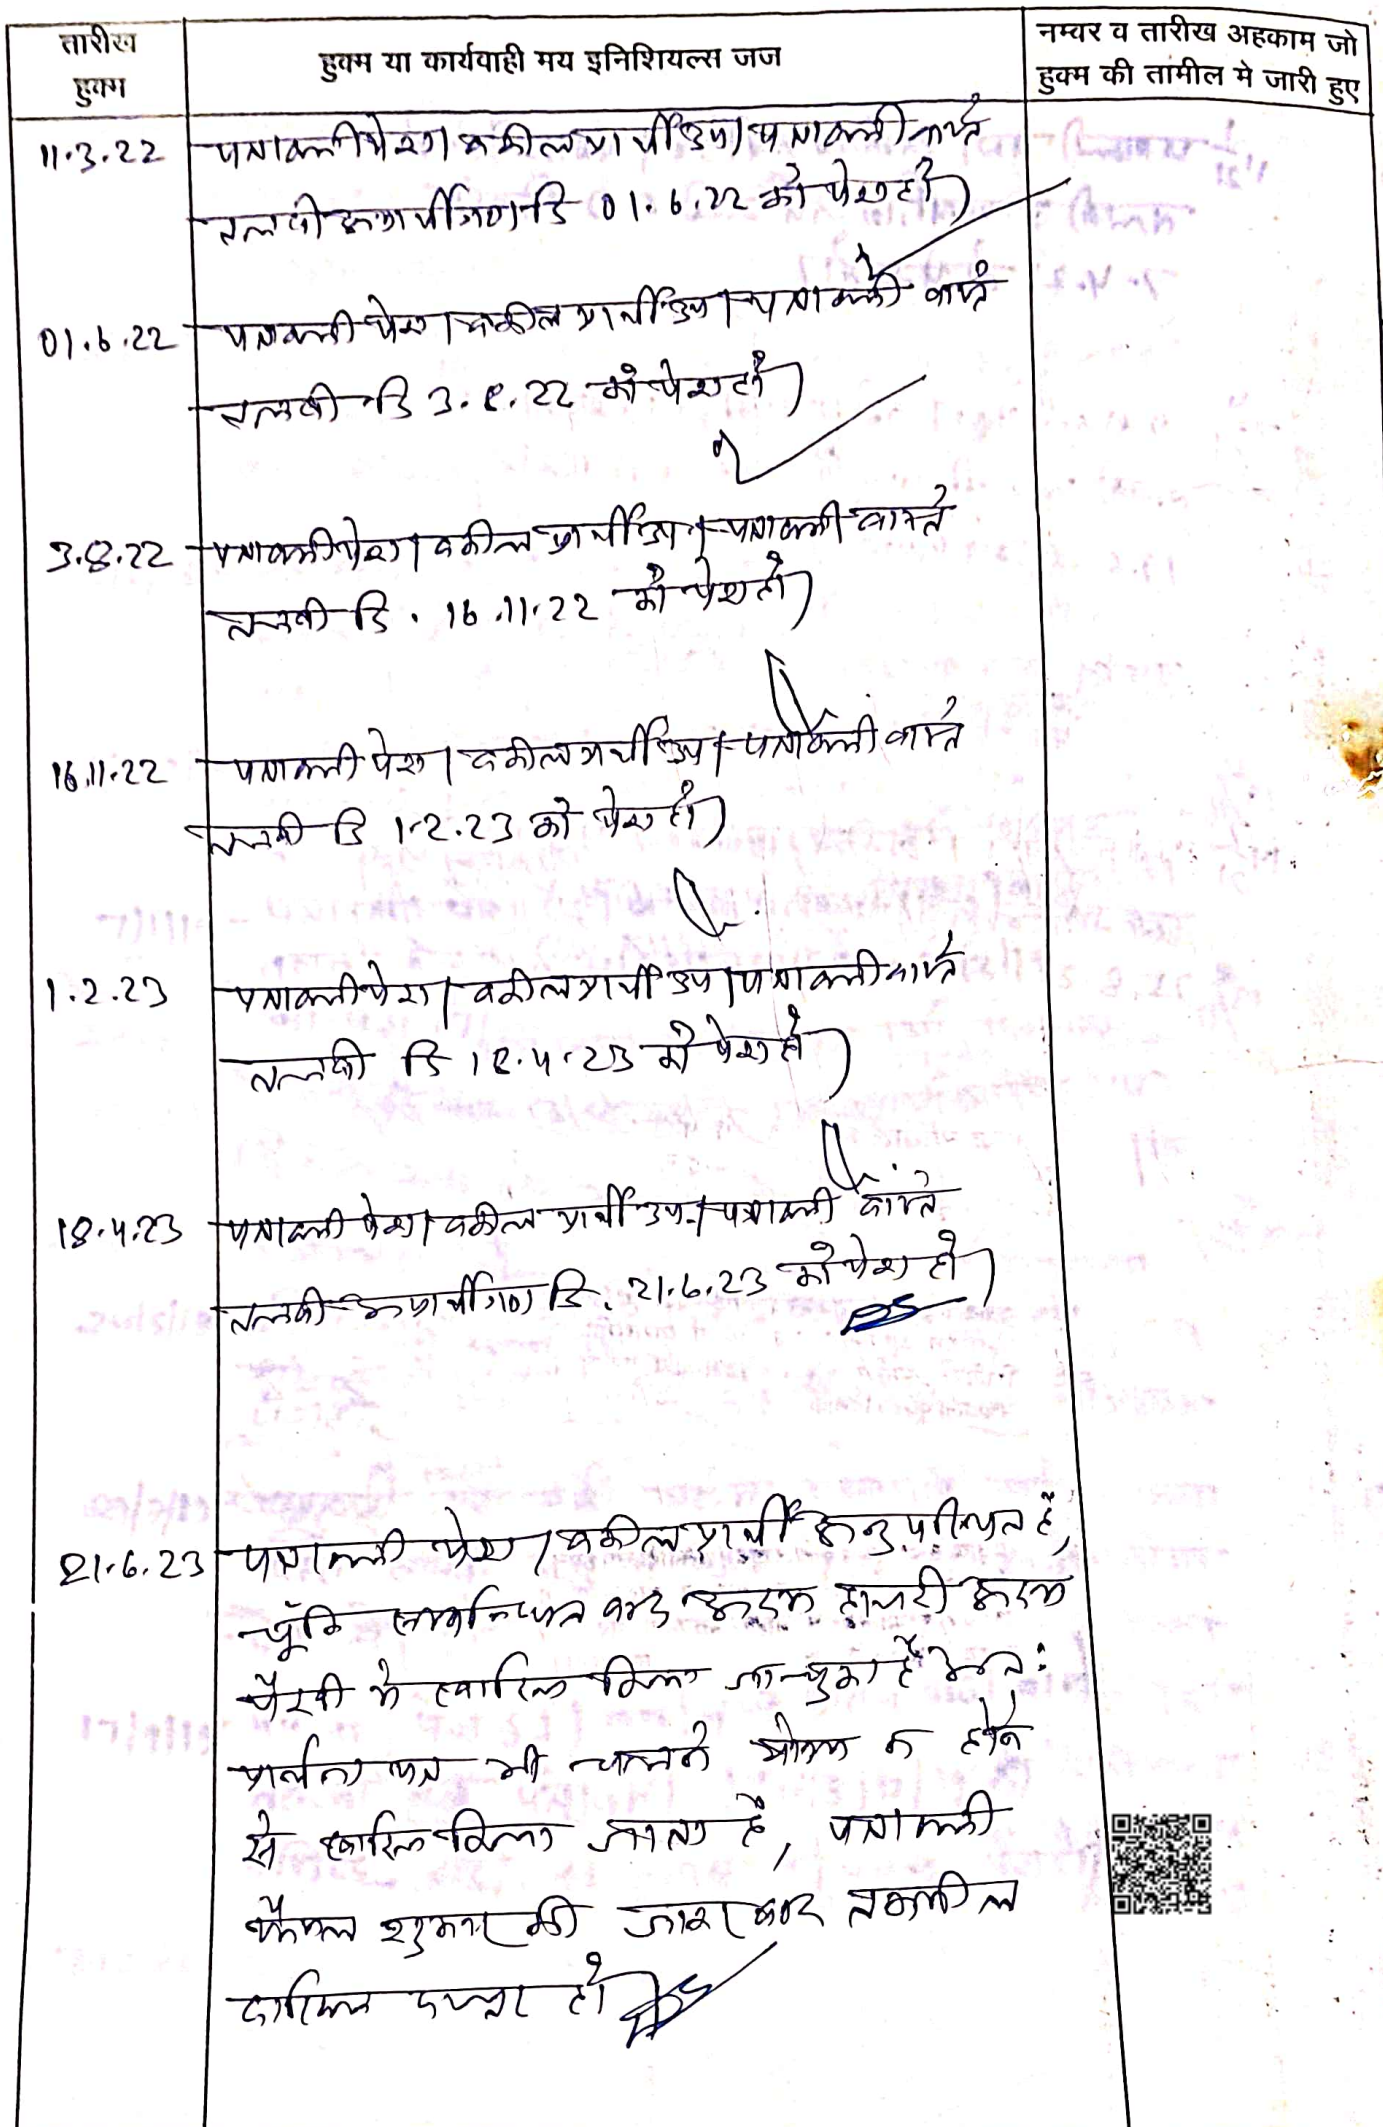 तारीख
हुक्म
हुक्म या कार्यवाही मय इनिशियल्स जज
नम्वर व तारीख अहकाम जो
हुक्म की तामील मे जारी हुए
11.3.22 पत्रावली पेश। वकील प्रार्थी उप। पत्रावली वास्ते
तलबी अप्रार्थीगण दि 01.6.22 को पेश हो।
01.6.22 पत्रावली पेश। वकील प्रार्थी उप। पत्रावली वास्ते
तलबी दि 3.8.22 को पेश हो।
3.8.22 पत्रावली पेश। वकील प्रार्थी उप। पत्रावली वास्ते
तलबी दि. 16.11.22 को पेश हो।
16.11.22 पत्रावली पेश। वकील प्रार्थी उप। पत्रावली वास्ते
तलबी दि 1.2.23 को पेश हो।
1.2.23 पत्रावली पेश। वकील प्रार्थी उप। पत्रावली वास्ते
तलबी दि 18.4.23 को पेश हो।
18.4.23 पत्रावली पेश। वकील प्रार्थी उप.। पत्रावली वास्ते
तलबी अप्रार्थीगण दि. 21.6.23 को पेश हो।
21.6.23 पत्रावली पेश। वकील प्रार्थी अनुपस्थित है,
चूंकि वाद अदम हाजरी अदम
पैरवी मे खारिज किया जा चुका है अतः
प्रार्थना पत्र भी चलने योग्य न होने
से खारिज किया जाता है, पत्रावली
फैसल शुमार की जाकर बाद तकमील
दाखिल दफ्तर हो।